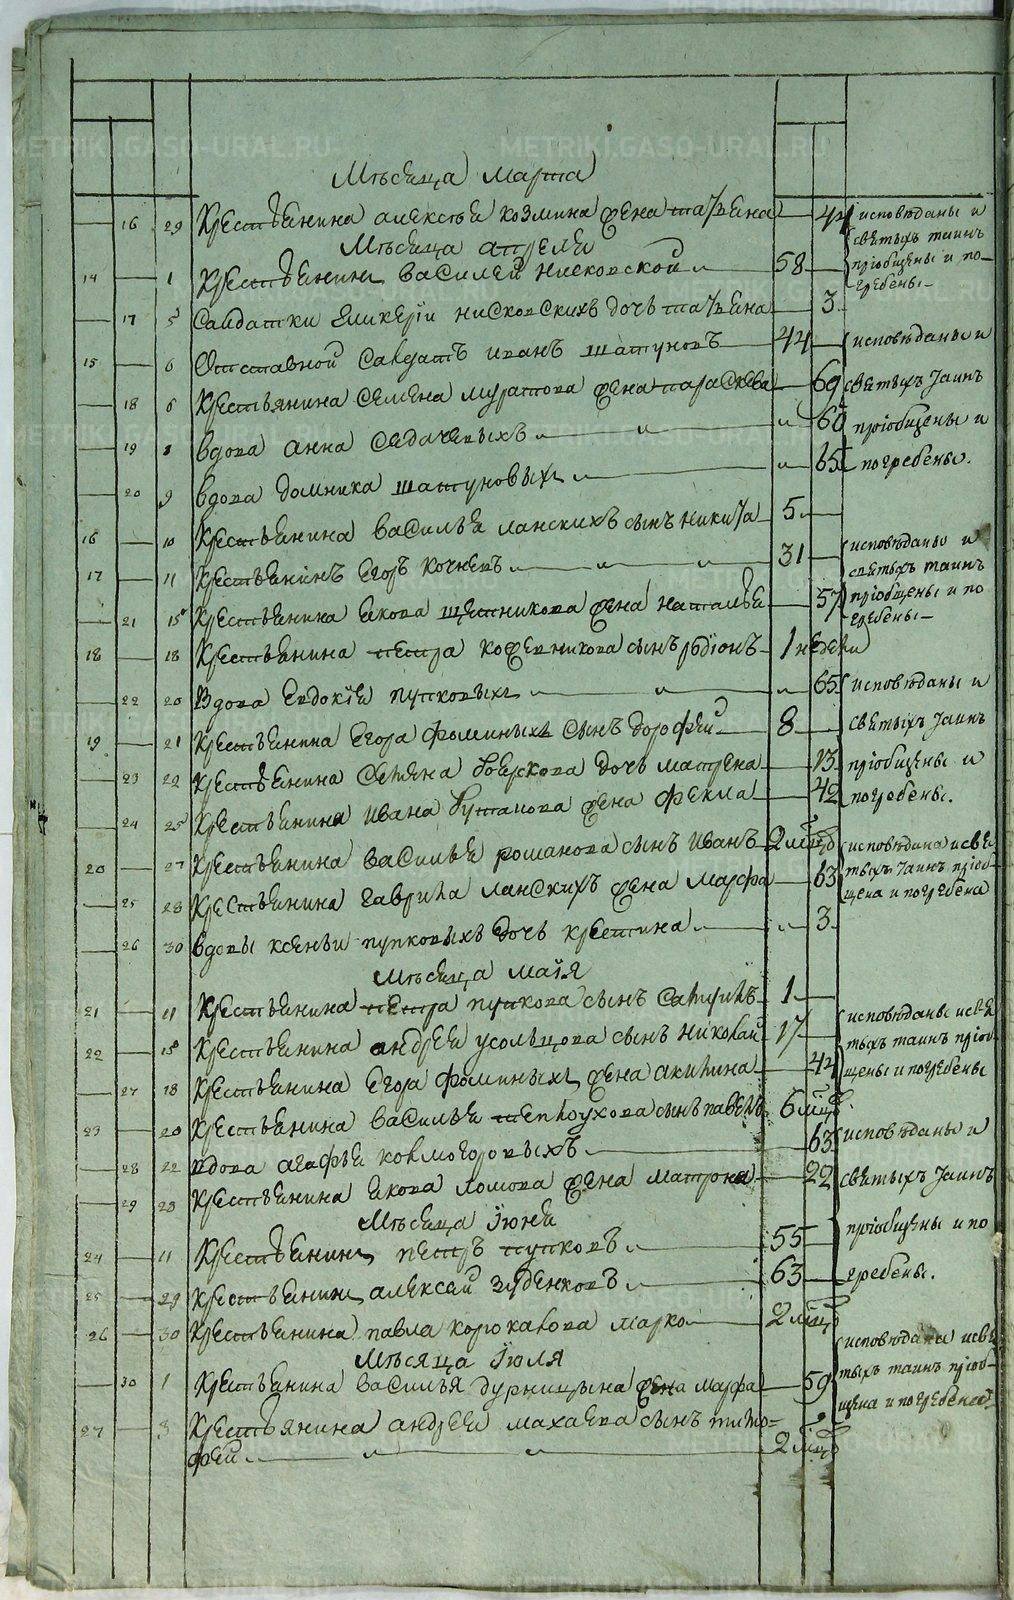 Мѣсяца марта
16 29 Крестьянина алексѣя козмина жена татьяна 44 исповѣданы и
святыхъ таинъ
приобщены и по-
гребены
Мѣсяца апреля
14 1 Крестьянинъ василей нисковской 58
17 5 Салдатки гликерїи нисковскихъ дочь татьяна 3
15 6 Отставной салдатъ иванъ шатуновъ 44 исповѣданы и
18 6 Крестьянина семена муратова жена параскева 69 святыхъ таинъ
19 8 вдова анна седачевыхъ 60 приобщены и
20 9 вдова домника шатуновыхъ 65 погребены.
16 10 Крестьянина василья ланскихъ сынъ никита 5
17 11 Крестьянинъ егоръ кочневъ 31 исповѣданы и
святыхъ таинъ
21 15 Крестьянина якова щетникова жена наталья 57 приобщены и по
гребены
18 18 Крестьянина петра кожевникова сынъ родїонъ 1 недели
22 20 Вдова евдокїя пупковыхъ 65 исповѣданы и
19 21 Крестьянина егора фоминыхъ сынъ дорофей 8 святыхъ таинъ
23 22 Крестьянина семена боярскова дочь матрена 13 приобщены и
24 25 Крестьянина ивана буткова жена фекла 42 погребены.
20 27 Крестьянина василья романова сынъ иванъ 2 мѣсяцовъ исповѣдана и свя
25 28 Крестьянина гаврила ланскихъ жена марфа 63 тыхъ таинъ приоб
щена и погребена
26 30 вдовы ксеньи пупковыхъ дочь крестина 3
Мѣсяца маїя
21 11 Крестьянина петра пупкова сынъ самуилъ 1
22 15 Крестьянина андрея усольцова сынъ николай 17 исповѣданы и свя
тыхъ таинъ приоб
27 18 Крестьянина егора фоминыхъ жена акилина 44 щены и погребены
23 20 Крестьянина василья теплоухова сынъ павелъ 6 мцъ
28 22 вдова агафья колмогоровыхъ 63 исповѣданы и
29 23 Крестьянина якова ломова жена матрона 22 святыхъ таинъ
Мѣсяца їюня
24 11 Крестьянинъ петръ пупковъ 55 приобщены и по
25 29 Крестьянинъ алексѣй зуденковъ 63 гребены.
26 30 Крестьянина павла корюкалова марко 2 мцъ
Мѣсяца їюля
30 1 Крестьянина василья дурницына жена марфа 59 исповѣдана и свя
тыхъ таинъ приоб-
щена и погребена
27 3 Крестьянина андрея махаева сынъ тимо=
фей 2 мцъ
METRIKI.GASO-URAL.RU